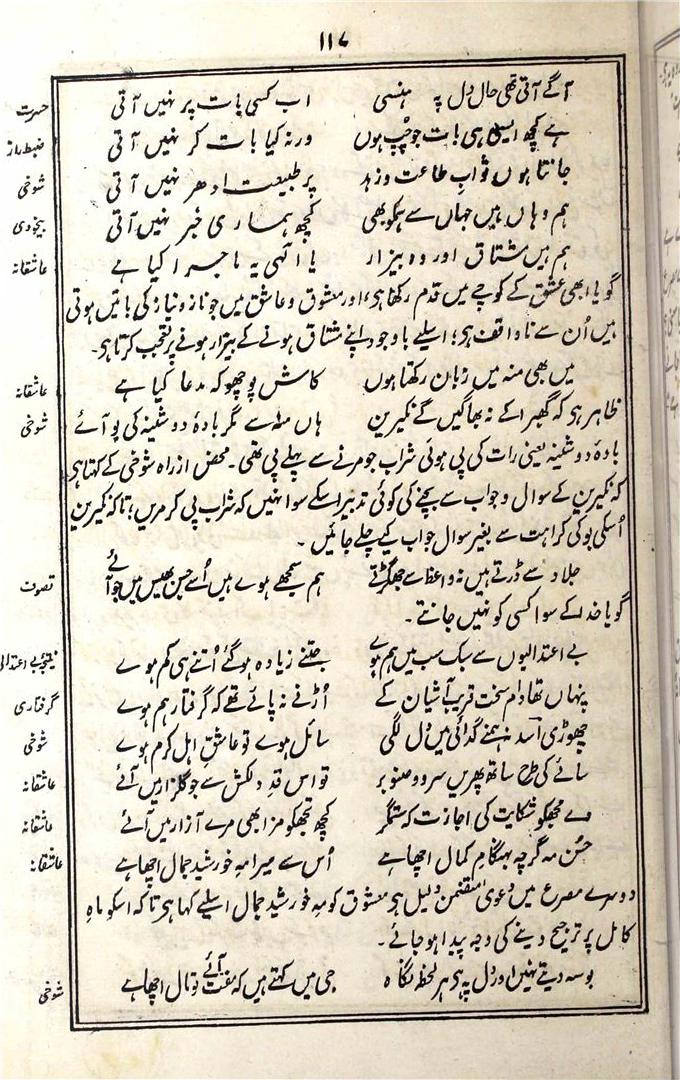 ۱۱۷
آگے آتی تھی حال دل پہ ہنسی اب کسی بات پر نہیں آتی حسرت
ہے کچھ ایسی ہی بات جو چپ ہوں ورنہ کیا بات کر نہیں آتی ضبط راز
جانتا ہوں ثواب طاعت و زہد پر طبیعت ادھر نہیں آتی شوخی
ہم وہاں ہیں جہاں سے ہمکو بھی کچھ ہماری خبر نہیں آتی بیخودی
ہم ہیں مشتاق اور وہ بیزار یا الٰہی یہ ماجرا کیا ہے عاشقانہ
گویا ابھی عشق کے کوچے میں قدم رکھا ہی، اور معشوق و عاشق میں جو ناز و نیاز کی باتیں ہوتی
ہیں اُن سے ناواقف ہی؛ اسلیے باوجود اپنے مشتاق ہونے کے بیزار ہونے پر تعجب کرتا ہی۔
میں بھی منہ میں زبان رکھتا ہوں کاش پوچھو کہ مدعا کیا ہے عاشقانہ
ظاہر ہی کہ گھبرا کے نہ بھاگیں گے نکیرین ہاں منہ سے مگر بادۂ دوشینہ کی بو آئے شوخی
بادۂ دوشینہ یعنی رات کی پی ہوئی شراب جو مرنے سے پہلے پی تھی۔ محض از راہ شوخی کے کہتا ہی
کہ نکیرین کے سوال و جواب سے بچنے کی کوئی تدبیر اسکے سوا نہیں کہ شراب پی کر مریں؛ تاکہ نکیرین
اُسکی بو کی کراہت سے بغیر سوال جواب کیے چلے جائیں۔
جلاد سے ڈرتے ہیں نہ واعظ سے جھگڑتے ہم سمجھے ہوے ہیں اُسے جس بھیس میں جو آئے تصوف
گویا خدا کے سوا کسی کو نہیں جانتے۔
بے اعتدالیوں سے سبک سب میں ہم ہوے جتنے زیادہ ہوگئے اُتنے ہی کم ہوے نتیجۂ بے اعتدالی
پنہاں تھا دام سخت قریب آشیان کے اُڑنے نہ پائے تھے کہ گرفتار ہم ہوے گرفتاری
چھوڑی اسد نہ ہمنے گدائی میں دل لگی سائل ہوے تو عاشق اہل کرم ہوے شوخی
سائے کی طرح ساتھ پھریں سرو و صنوبر تو اس قد دلکش سے جو گلزار میں آئے عاشقانہ
دے مجھکو شکایت کی اجازت کہ ستمگر کچھ تجھکو مزا بھی مرے آزار میں آئے عاشقانہ
حسن مہ گرچہ بہنگام کمال اچھا ہے اُس سے میرا مہ خورشید جمال اچھا ہے عاشقانہ
دوسرے مصرع میں دعویٰ متضمن دلیل ہی معشوق کو مہ خورشید جمال اسلیے کہا ہی تاکہ اسکو ماہ
کامل پر ترجیح دینے کی وجہ پیدا ہو جائے۔
بوسہ دیتے نہیں اور دل پہ ہی ہر لحظ نگاہ جی میں کہتے ہیں کہ مفت آئے تو مال اچھا ہے شوخی